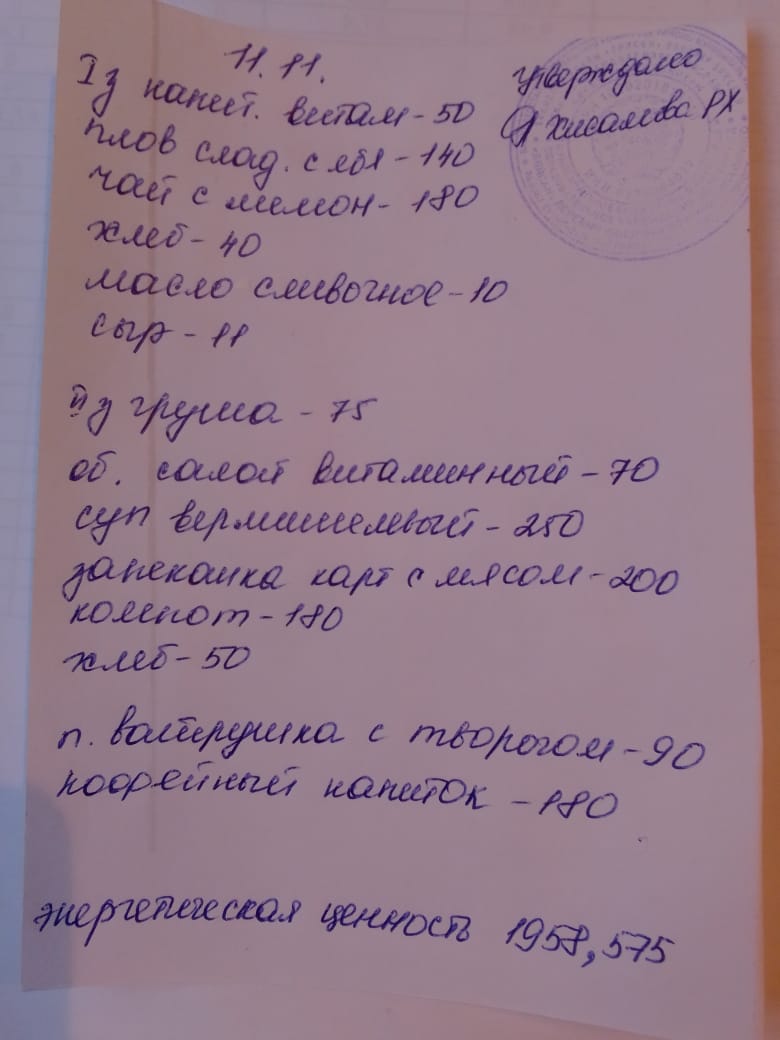 11.11.
Утверждаю
Хисамова РХ
I з напит. витам - 50
плов слад. с ябл - 140
чай с лимон - 180
хлеб - 40
масло сливочное - 10
сыр - 11
II з груша - 75
об. салат витаминный - 70
суп вермишелевый - 250
запеканка карт с мясом - 200
компот - 180
хлеб - 50
п. ватрушка с творогом - 90
кофейный напиток - 180
энергетическая ценность 1958,575